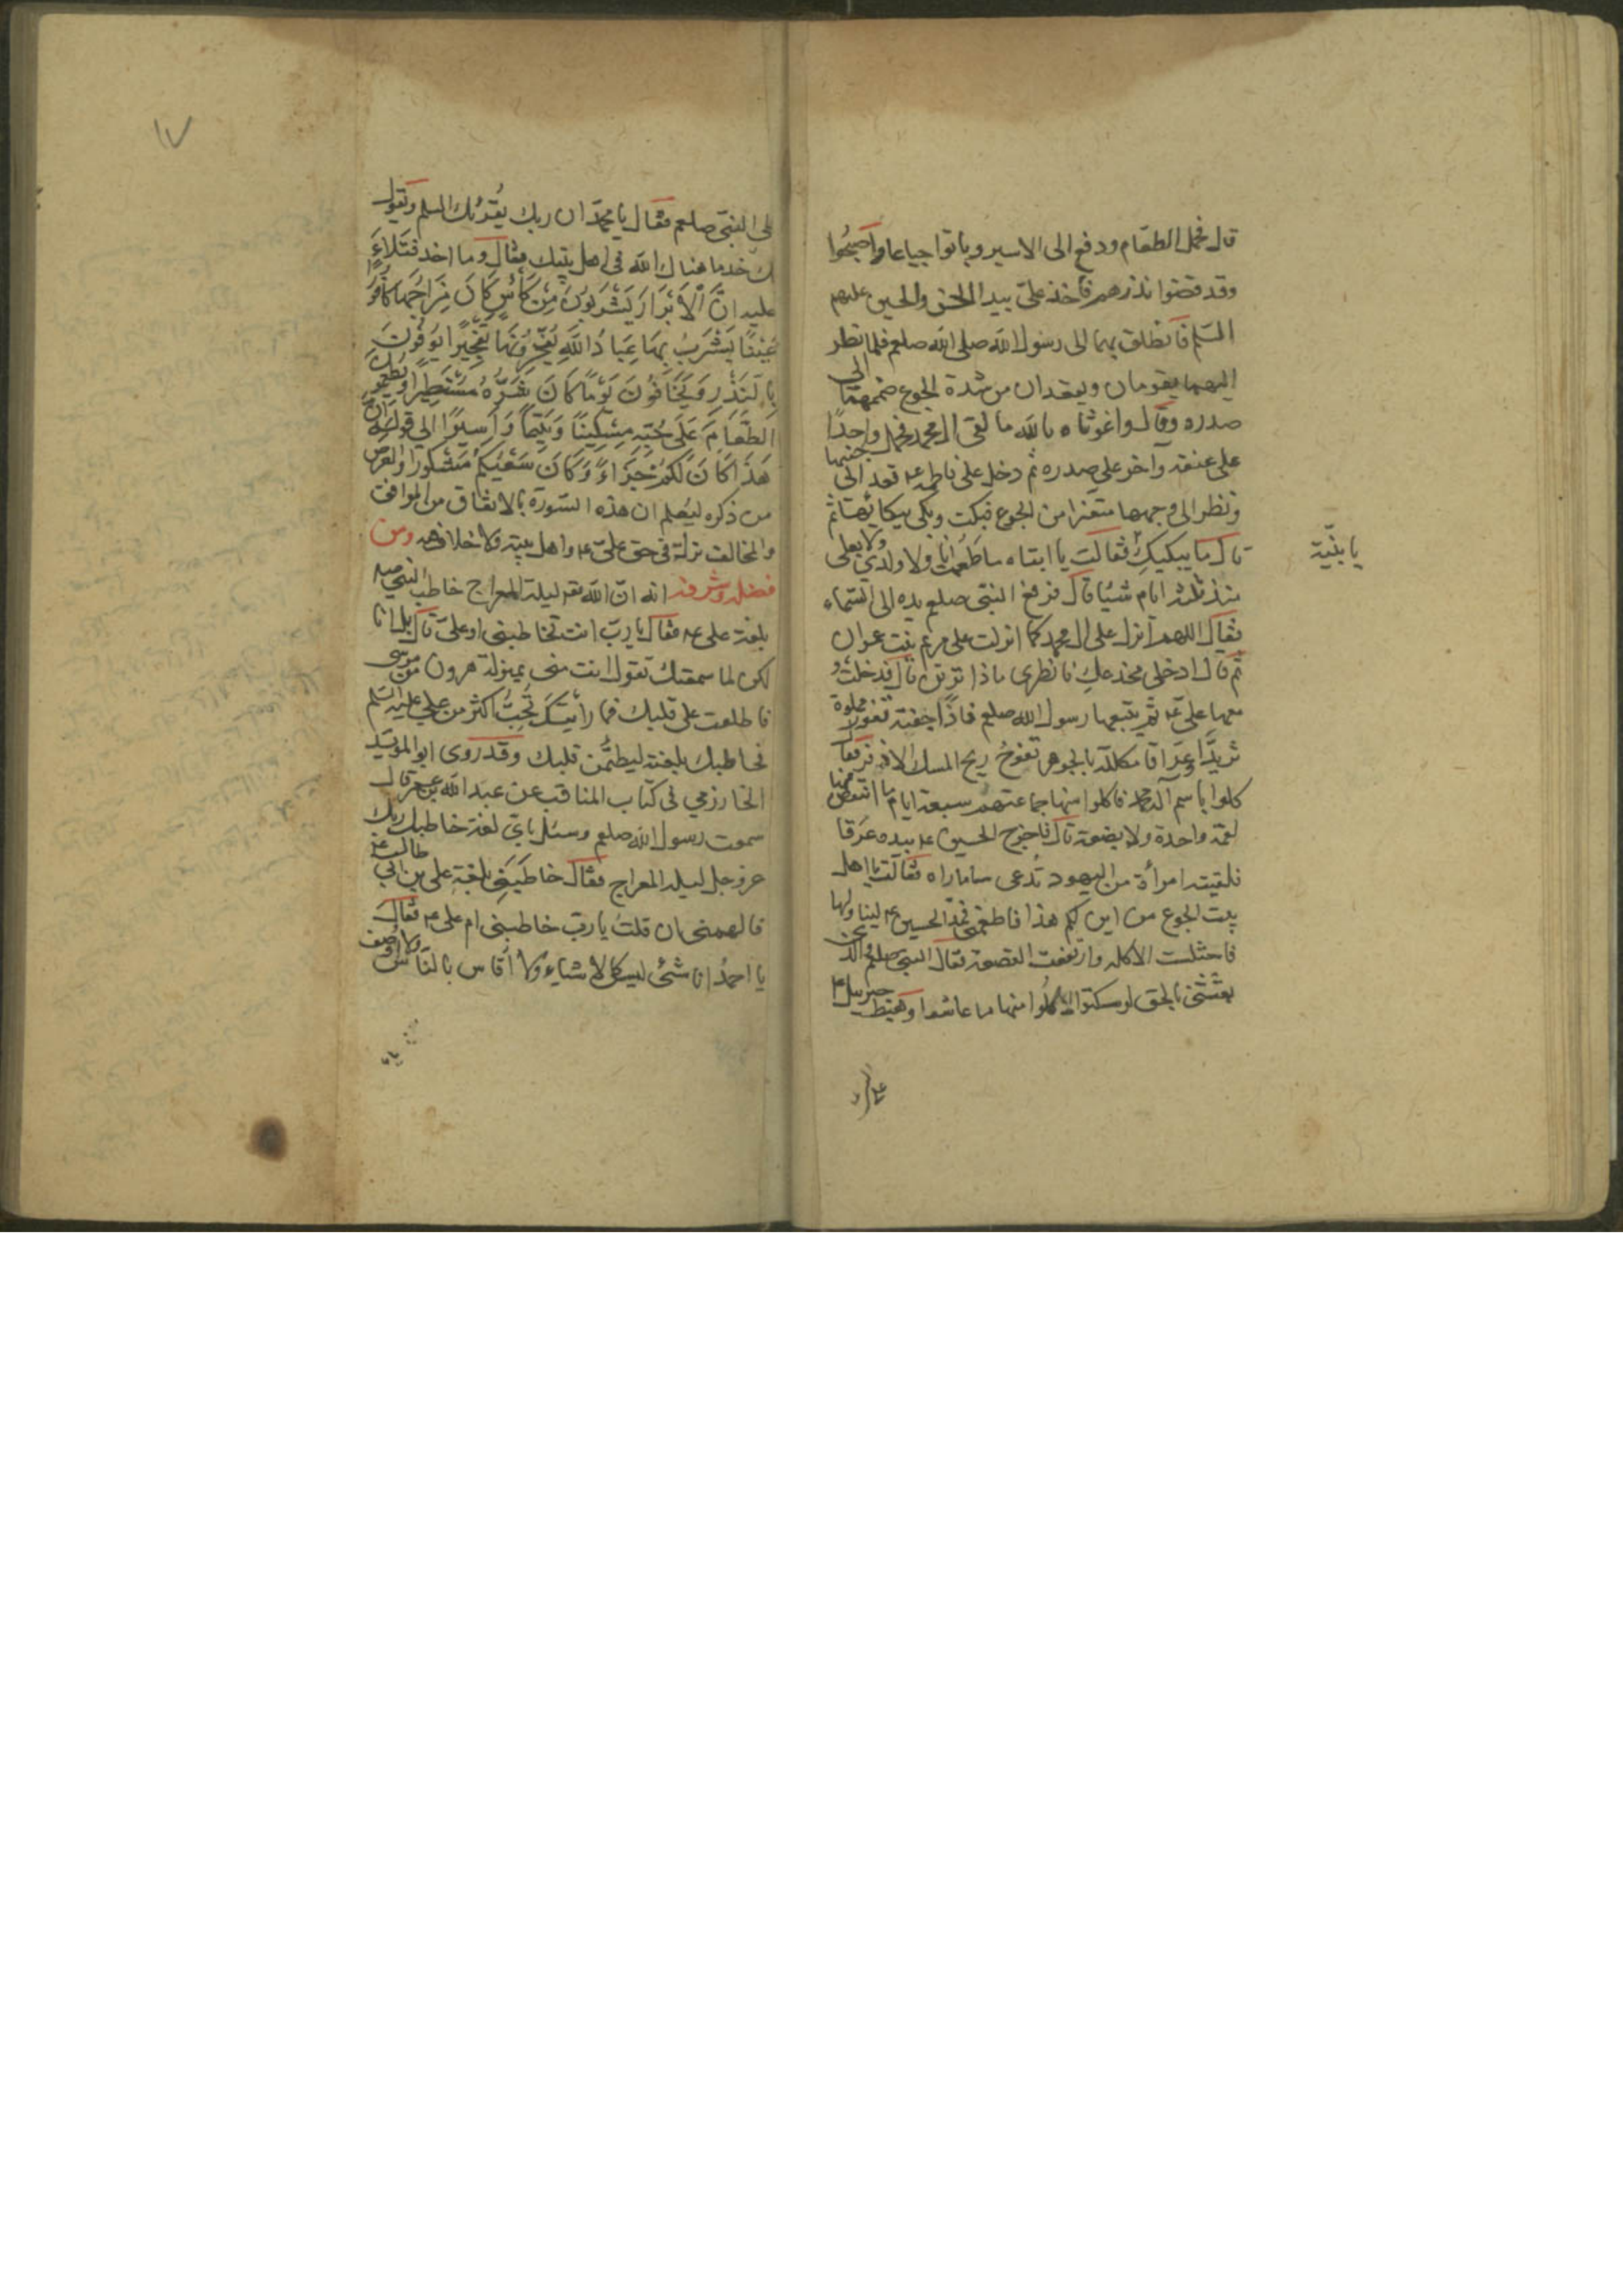 قال فحمل الطعام ودفع الى الاسير وباتوا جياعا واصبحوا
وقد قضوا نذرهم فاخذ علىّ بيد الحسن والحسين عليهم
السّلم فانطلق بهما الى رسول الله صلى الله صلعم فلما نظر
اليهما يقومان ويقعدان من شدة الجوع ضمهما الى
صدره وقال واغوثاه بالله ما لقى ال محمد فحمل واحدًا
على عنقه وآخر على صدره ثم دخل على فاطمه ع قعد الى جنبها
ونظر الى وجهها متغيرا من الجوع فبكت وبكى لبكائها ثم
قال ما يبكيك يا بنيّة فقالت يا ابتاه ما طعمت انا ولا ولدي ولا بعلى
منذ ثلثة ايام شيئا قال فرفع النبى صلعم يده الى السّماء
فقال اللهم انزل على ال محمد كما انزلت على مريم بنت عمران
ثم قال ادخلى مخدعك فانظرى ماذا ترين قال فدخلت و
معها علىّ ع ثم يتبعها رسول الله صلعم فاذا جفنة تفور مملوة
ثريدًا وعراقا مكللة بالجوهر تفوح ريح المسك الاذفر فقال
كلوا باسم الله فاكلوا منها جماعتهم سبعة ايام ما انتقص منها
لقمة واحدة ولا بضعة قال فاخرج الحسين ع بيده عرقا
فلقيته امرأة من اليهود تُدعى سامارا فقالت يا اهل
بيت الجوع من اين لكم هذا فاطعمنى فمدّ الحسين ع ليناولها
فاختلست الاكله وارتفعت القصعة فقال النبى صلعم والذى
بعثنى بالحق لو سكتوا لاكلوا منها ما عاشوا وهبط جبرئيل ع
على النبى صلعم فقال يا محمّد ان ربك يُقرئك السلم ويقول
لك خذ ما هناك الله فى اهل بيتك فقال وما اخذ فتلاء
عليه انّ الْاَبْرَارَ يَشْرَبُونَ مِنْ كَأْسٍ كَانَ مِزَاجُهَا كَافُورًا
عَيْنًا يَشْرَبُ بِهَا عِبَادُ اللهِ يُفَجِّرُونَهَا تَفْجِيرًا يُوفُونَ
بِالنَّذْرِ وَيَخَافُونَ يَوْمًا كَانَ شَرُّهُ مُسْتَطِيرًا ويُطْعِمُونَ
الطَّعَامَ عَلَى حُبِّهِ مِسْكِينًا وَيَتِيمًا وَأَسِيرًا الى قوله انّ
هَذَا كَانَ لَكُمْ جَزَاءً وَكَانَ سَعْيُكُمْ مَشْكُورًا والغرض
من ذكره ليُعلم ان هذه السّورة بالاتفاق من الموافق
والمخالف نزلة فى حق علىّ ع واهل بيته ولا خلاف فيه ومن
فضله وشرفه انه انّ الله تع ليلة المعراج خاطب النبى ص
بلغة على ع فقال يا ربّ انت تخاطبنى او علىّ قال بل انا
لكن لما سمعتك تقول انت منى بمنزلة هرون من موسى
فاطلعت على قلبك فما رأيتك تُحبُّ اكثر من علىّ عليه السّلم
فخاطبتك بلغته ليطمئن قلبك وقد روى ابو المؤيد
الخارزمي فى كتاب المناقب عن عبد الله بن عمر قال
سمعت رسول الله صلعم وسئل باىّ لغة خاطبك ربك
عزوجل ليلة المعراج فقال خاطبنى بلغة على بن ابى طالب ع
فالهمنى ان قلتُ يا ربّ خاطبنى ام على ع فقال
يا احمدُ انا شئ ليس كالاشياء ولا اُقاس بالنّاس ولا اُوصف